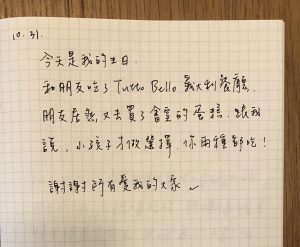 10.31.
今天是我的生日.
和朋友吃了 Tutto Bello 義大利餐廳.
朋友居然又去買了貪靈的蛋糕.跟我
說,小孩子才做選擇,你兩種都吃!
謝謝所有愛我的大家~